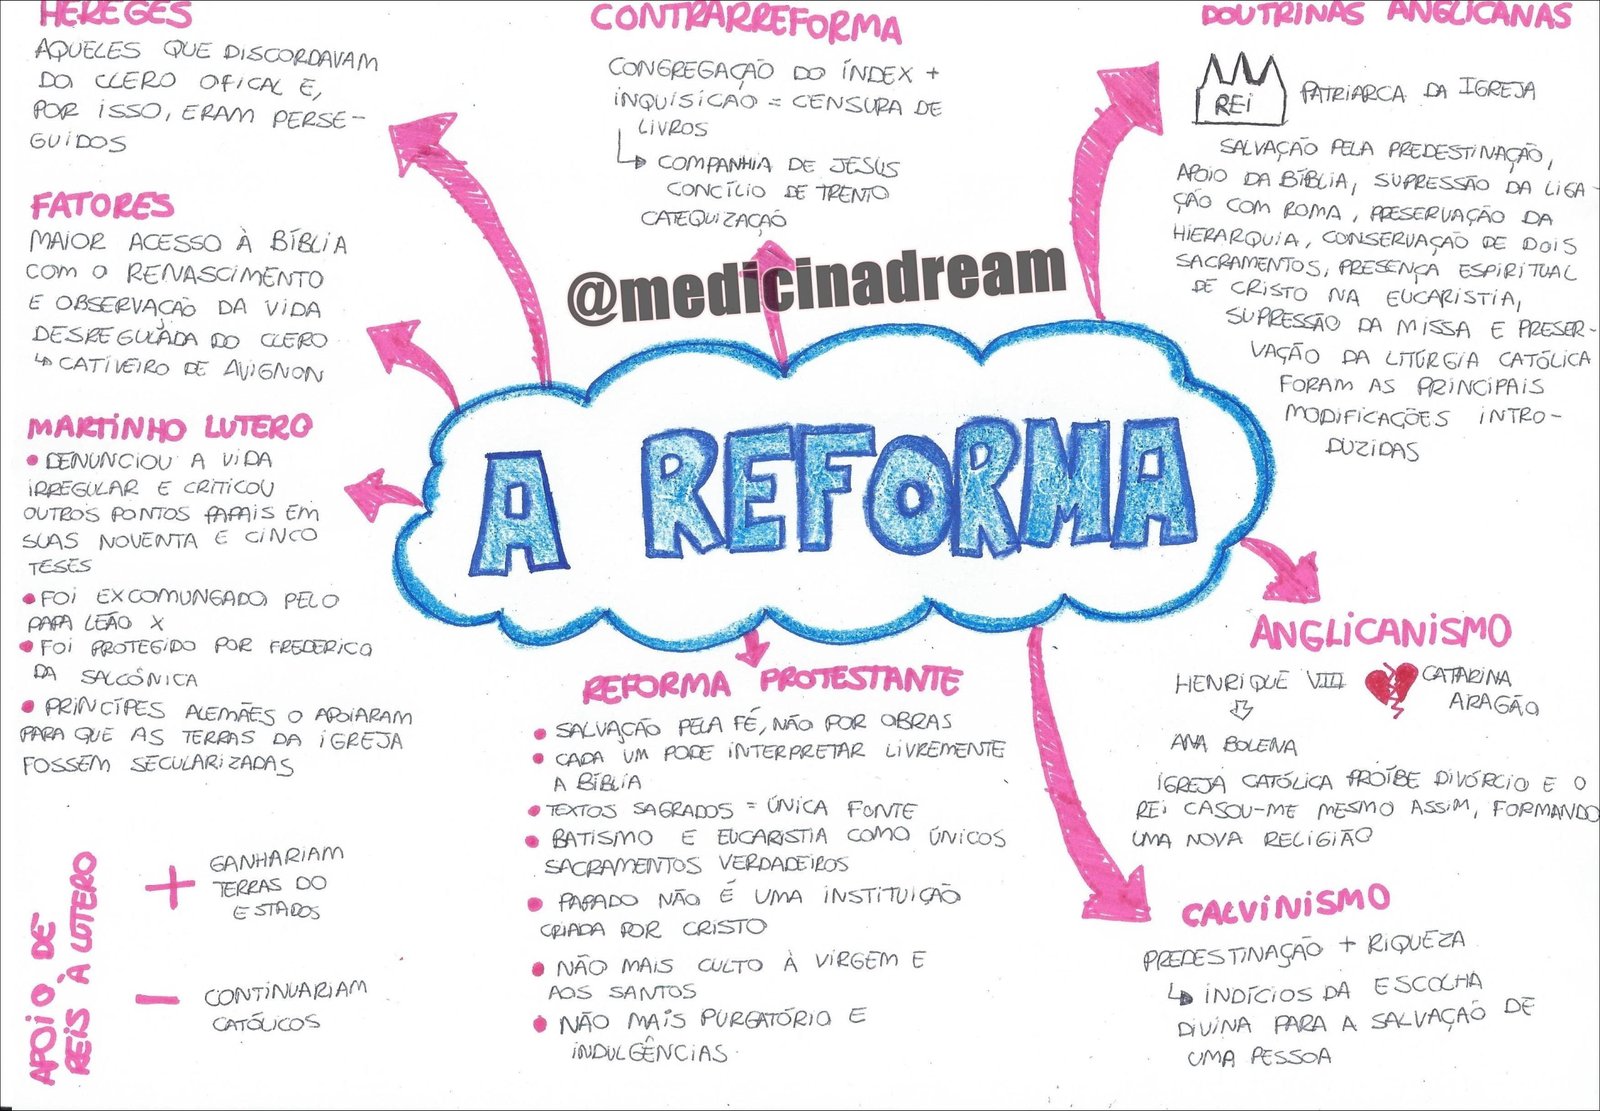 HEREGES
AQUELES QUE DISCORDAVAM
DO CLERO OFICAL E,
POR ISSO, ERAM PERSE-
GUIDOS
FATORES
MAIOR ACESSO À BÍBLIA
COM O RENASCIMENTO
E OBSERVAÇÃO DA VIDA
DESREGULADA DO CLERO
↳ CATIVEIRO DE AVIGNON
MARTINHO LUTERO
• DENUNCIOU A VIDA
IRREGULAR E CRITICOU
OUTROS PONTOS PAPAIS EM
SUAS NOVENTA E CINCO
TESES
• FOI EXCOMUNGADO PELO
PAPA LEÃO X
• FOI PROTEGIDO POR FREDERICO
DA SALCÔNICA
• PRINCÍPES ALEMÃES O APOIARAM
PARA QUE AS TERRAS DA IGREJA
FOSSEM SECULARIZADAS
APOIO DE
REIS À LUTERO
+ GANHARIAM
TERRAS DO
ESTADOS
- CONTINUARIAM
CATÓLICOS
CONTRARREFORMA
CONGREGAÇÃO DO ÍNDEX +
INQUISICAO = CENSURA DE
LIVROS
↳ COMPANHIA DE JESUS
CONCÍLIO DE TRENTO
CATEQUIZAÇAÕ
@medicinadream
A REFORMA
REFORMA PROTESTANTE
• SALVAÇÃO PELA FÉ, NÃO POR OBRAS
• CADA UM PODE INTERPRETAR LIVREMENTE
A BÍBLIA
• TEXTOS SAGRADOS = ÚNICA FONTE
• BATISMO E EUCARISTIA COMO ÚNICOS
SACRAMENTOS VERDADEIROS
• PAPADO NÃO É UMA INSTITUIÇÃO
CRIADA POR CRISTO
• NÃO MAIS CULTO À VIRGEM E
AOS SANTOS
• NÃO MAIS PURGATÓRIO E
INDULGÊNCIAS
DOUTRINAS ANGLICANAS
REI PATRIARCA DA IGREJA
SALVAÇÃO PELA PREDESTINAÇÃO,
APOIO DA BÍBLIA, SUPRESSÃO DA LIGA-
ÇÃO COM ROMA, PRESERVAÇÃO DA
HIERARQUIA, CONSERVAÇÃO DE DOIS
SACRAMENTOS, PRESENÇA ESPIRITUAL
DE CRISTO NA EUCARISTIA,
SUPRESSÃO DA MISSA E PRESER-
VAÇÃO DA LITÚRGIA CATÓLICA
FORAM AS PRINCIPAIS
MODIFICAÇÕES INTRO-
DUZIDAS
ANGLICANISMO
HENRIQUE VIII CATARINA
ARAGÃO
ANA BOLENA
IGREJA CATÓLICA PROÍBE DIVÓRCIO E O
REI CASOU-ME MESMO ASSIM, FORMANDO
UMA NOVA RELIGIÃO
CALVINISMO
PREDESTINAÇÃO + RIQUEZA
↳ INDÍCIOS DA ESCOLHA
DIVINA PARA A SALVAÇÃO DE
UMA PESSOA